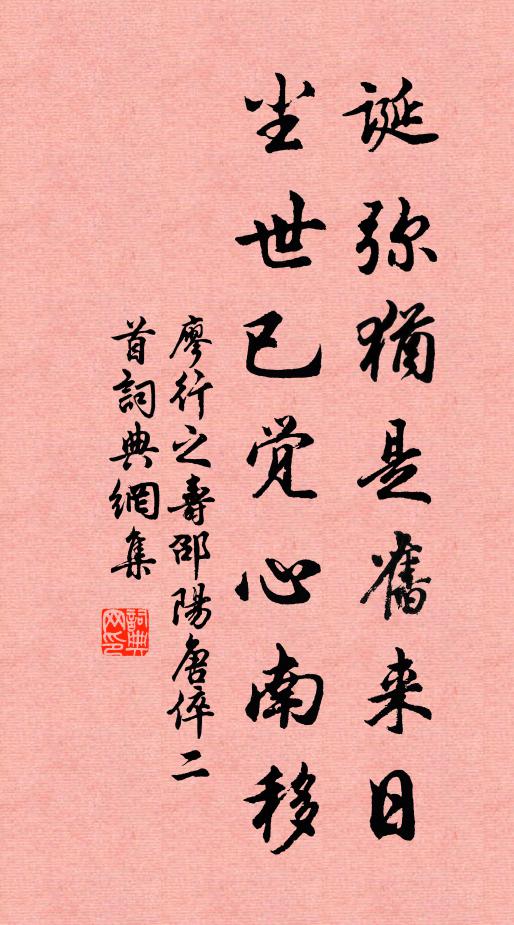 誕弥猶是舊来日
尘世已觉心南移
廖行之壽邵陽唐倅二
首詞典網集
詞典
网印